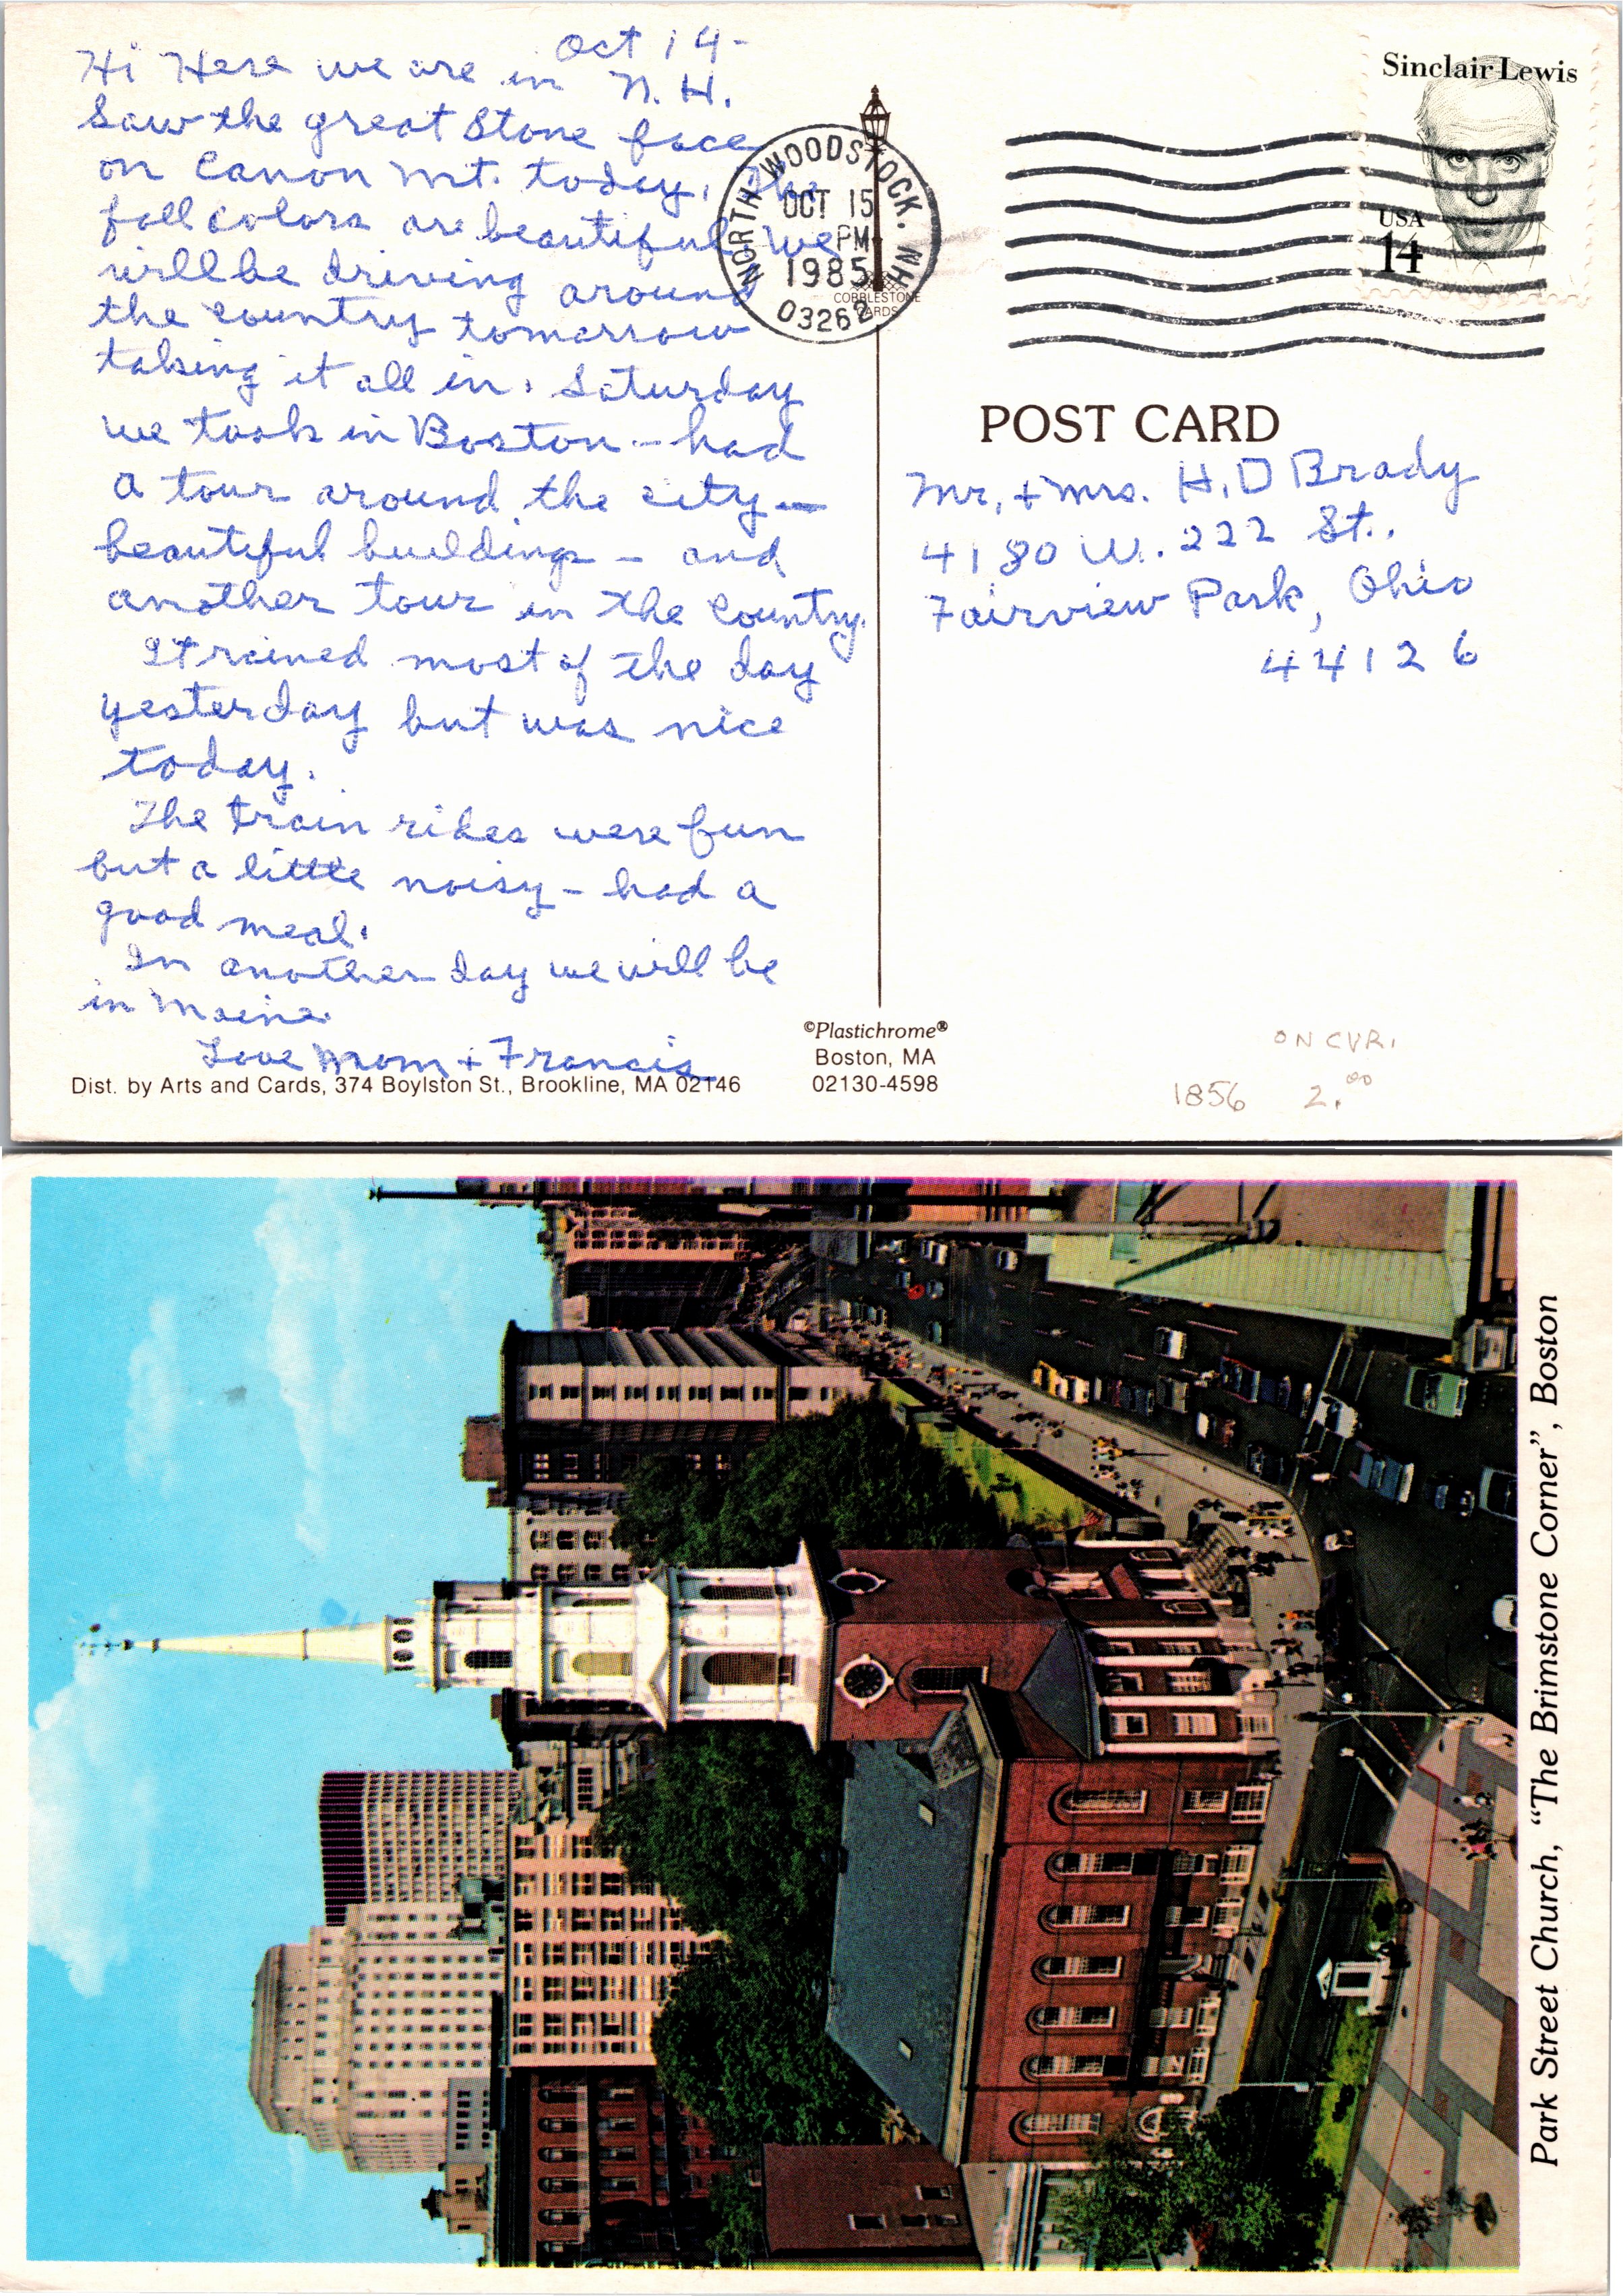 Oct 14-
Hi Here we are in N.H.
Saw the great Stone face
on Canon Mt. today. The
fall colors are beautiful We
will be driving around
the country tomorrow
taking it all in. Saturday
we took in Boston - had
a tour around the city -
beautiful buildings - and
another tour in the country.
It rained most of the day
yesterday but was nice
today.
The train rides were fun
but a little noisy - had a
good meal.
In another day we will be
in Maine.
Love Mom + Francis
Dist. by Arts and Cards, 374 Boylston St., Brookline, MA 02146
NORTH WOODSTOCK. NH
OCT 15
PM
1985
03262
COBBLESTONE
CARDS
Sinclair Lewis
USA
14
POST CARD
Mr. + Mrs. H. D Brady
4180 W. 222 St..
Fairview Park, Ohio
44126
©Plastichrome®
Boston, MA
02130-4598
ON CVR.
1856 2.00
Park Street Church, “The Brimstone Corner”, Boston